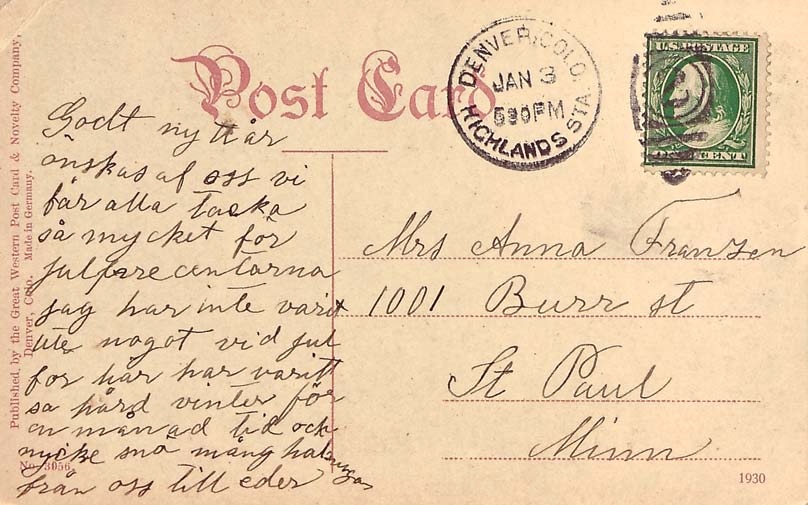 Post Card
Published by the Great Western Post Card & Novelty Company,
Denver, Colo. Made in Germany.
No. 3056
DENVER, COLO.
JAN 3
530PM
HIGHLANDS STA.
U.S. POSTAGE
ONE CENT
Godt nytt år
önskas af oss vi
får alla tacka
så mycket för
julprecentarna
jag har inte varit
ute nogot vid jul
for här har varitt
så hård vinter för
en månad tid och
mycke snö mång halsningar
från oss till eder
Mrs Anna Franzen
1001 Burr st
St Paul
Minn
1930